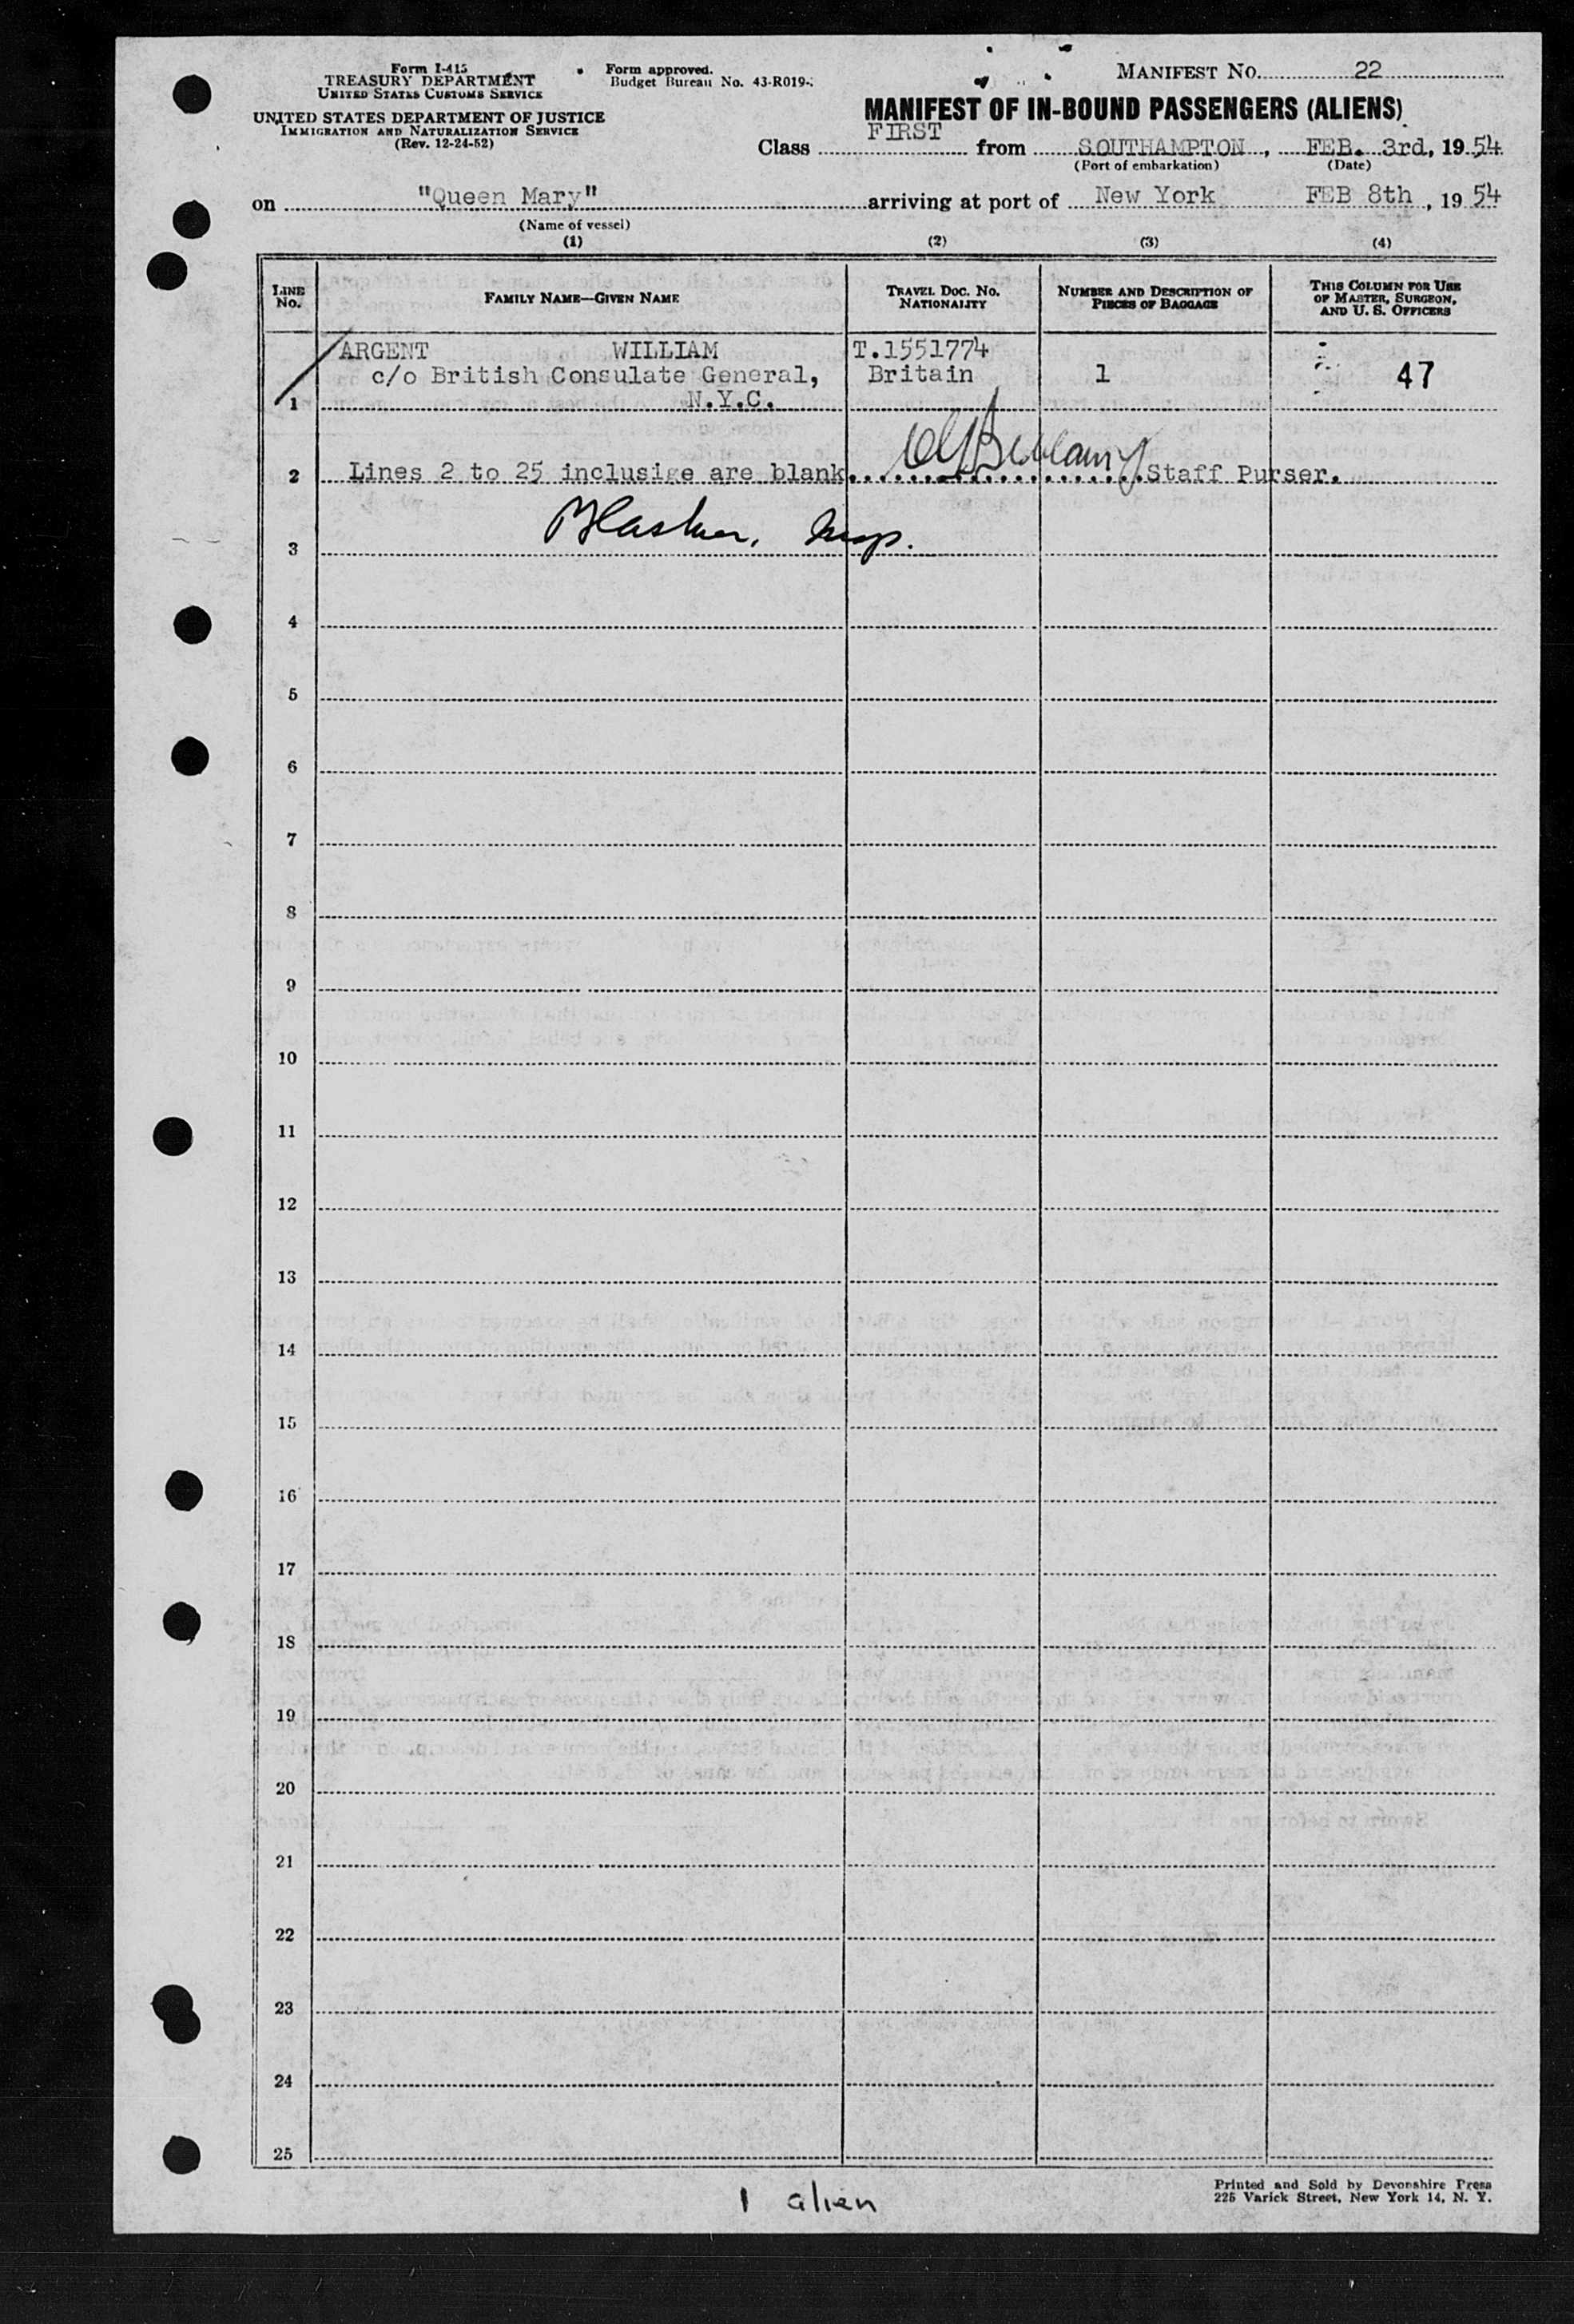 Form I-415
TREASURY DEPARTMENT
UNITED STATES CUSTOMS SERVICE
UNITED STATES DEPARTMENT OF JUSTICE
IMMIGRATION AND NATURALIZATION SERVICE
(Rev. 12-24-52)
Form approved.
Budget Bureau No. 43-R019-
MANIFEST NO. 22
MANIFEST OF IN-BOUND PASSENGERS (ALIENS)
Class FIRST from SOUTHAMPTON, FEB. 3rd, 1954
(Port of embarkation) (Date)
on "Queen Mary" arriving at port of New York FEB 8th, 1954
(Name of vessel)
(1) (2) (3) (4)
LINE NO.
FAMILY NAME—GIVEN NAME
TRAVEL DOC. NO. NATIONALITY
NUMBER AND DESCRIPTION OF PIECES OF BAGGAGE
THIS COLUMN FOR USE OF MASTER, SURGEON, AND U. S. OFFICERS
ARGENT WILLIAM T.1551774
c/o British Consulate General, Britain 1 47
1 N.Y.C.
2 Lines 2 to 25 inclusige are blank. Staff Purser.
3
4
5
6
7
8
9
10
11
12
13
14
15
16
17
18
19
20
21
22
23
24
25
1 alien
Printed and Sold by Devonshire Press
225 Varick Street, New York 14, N. Y.